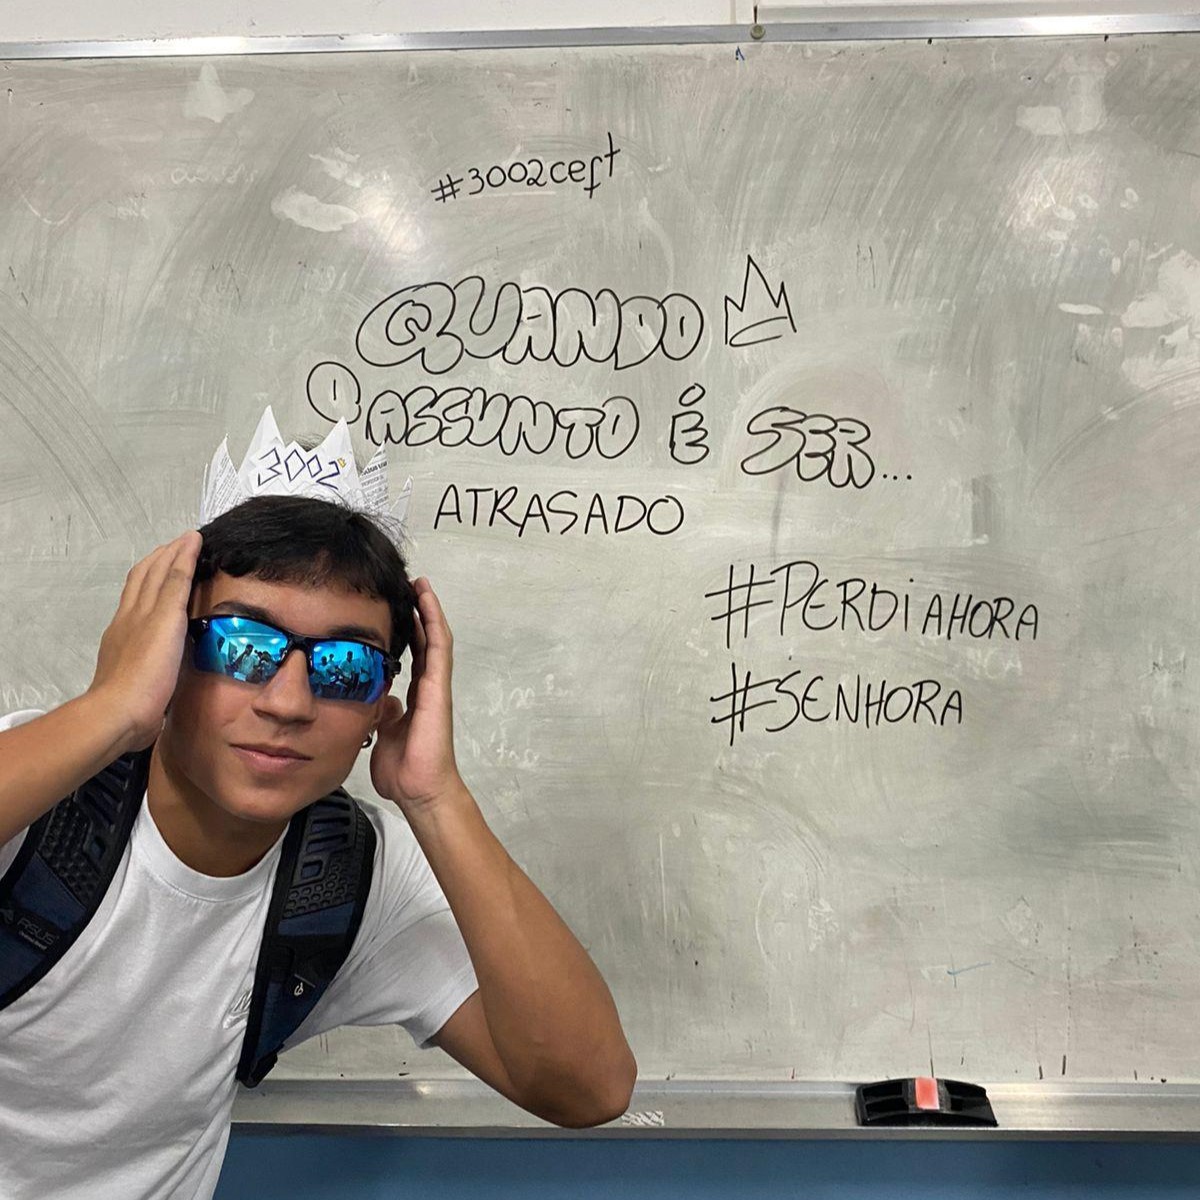 #3002ceft
QUANDO
O ASSUNTO É SER...
3002
ATRASADO
#PERDiAHORA
#SENHORA
ASUS